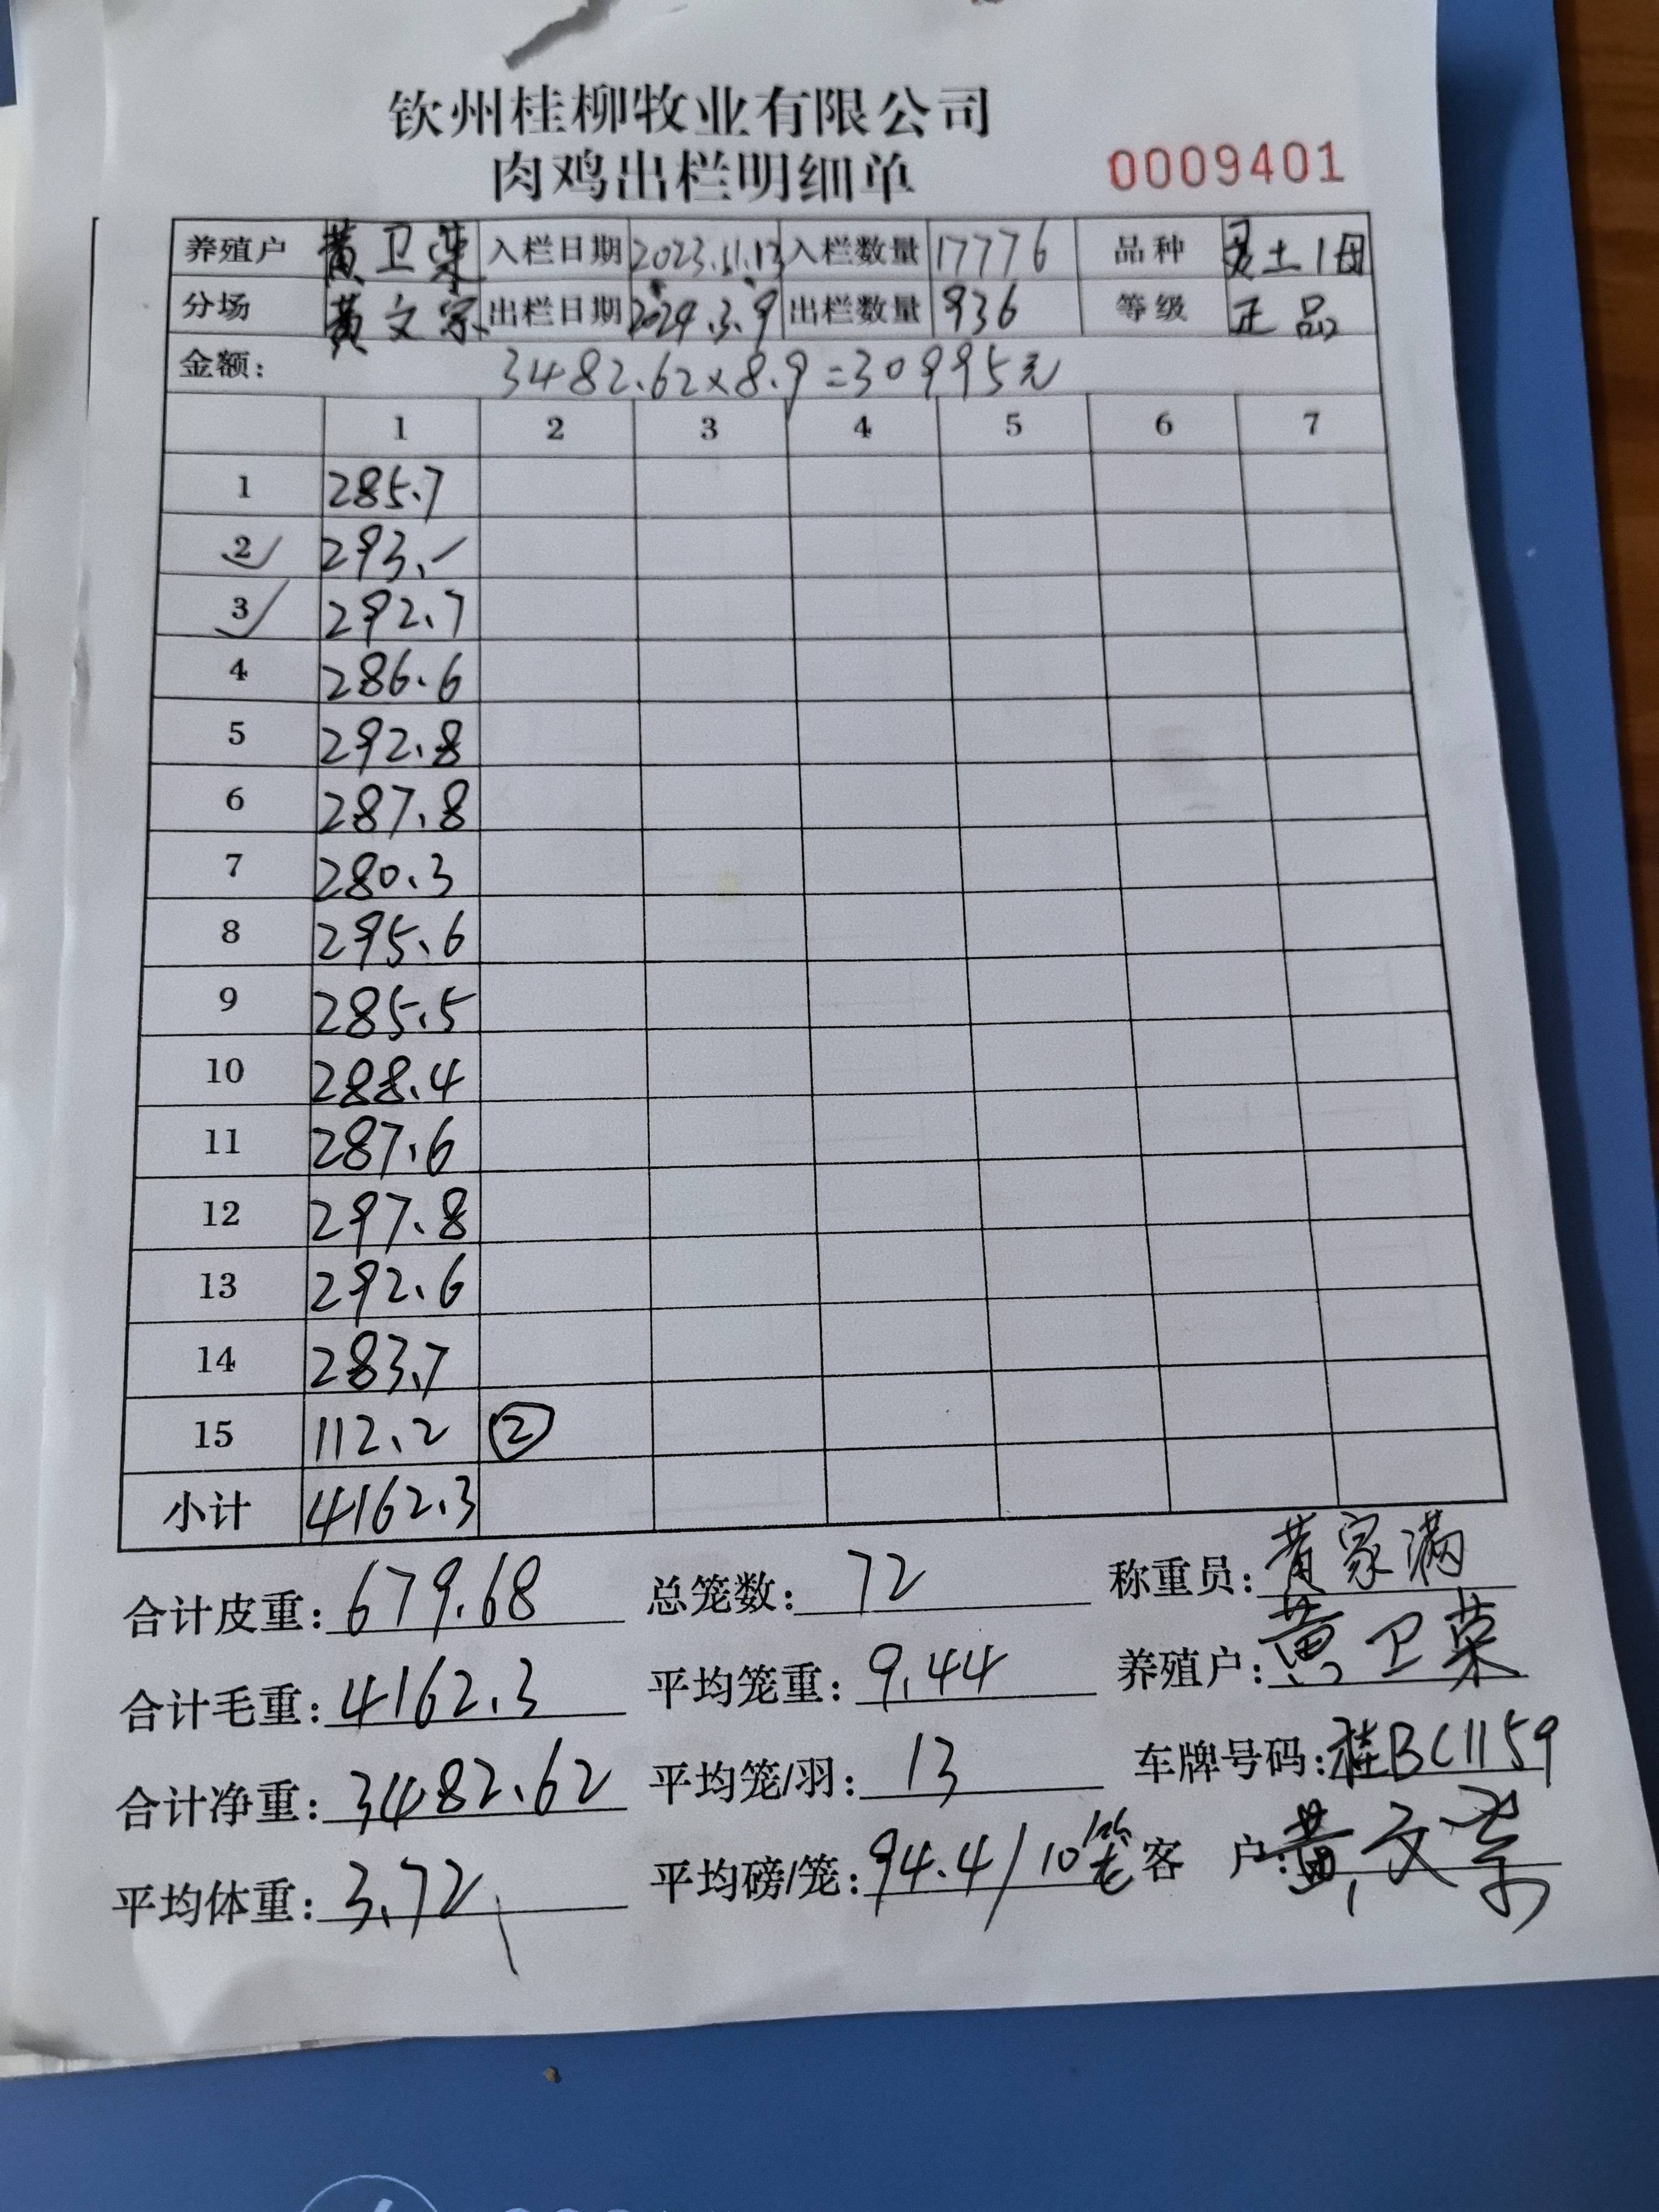 钦州桂柳牧业有限公司
肉鸡出栏明细单 0009401
养殖户 黄卫荣 入栏日期 2023.11.13 入栏数量 17776 品种 土1母
分场 黄文 出栏日期 2024.3.9 出栏数量 936 等级 正品
金额: 3482.62×8.9=30995元
1 2 3 4 5 6 7
1 285.7
2 293.-
3 292.7
4 286.6
5 292.8
6 287.8
7 280.3
8 295.6
9 285.5
10 288.4
11 287.6
12 297.8
13 292.6
14 283.7
15 112.2 ②
小计 4162.3
合计皮重: 679.68 总笼数: 72 称重员: 黄家满
合计毛重: 4162.3 平均笼重: 9.44 养殖户: 黄卫荣
合计净重: 3482.62 平均笼/羽: 13 车牌号码: 桂BC1159
平均体重: 3.72 平均磅/笼: 94.4/10笼 客户: 黄文